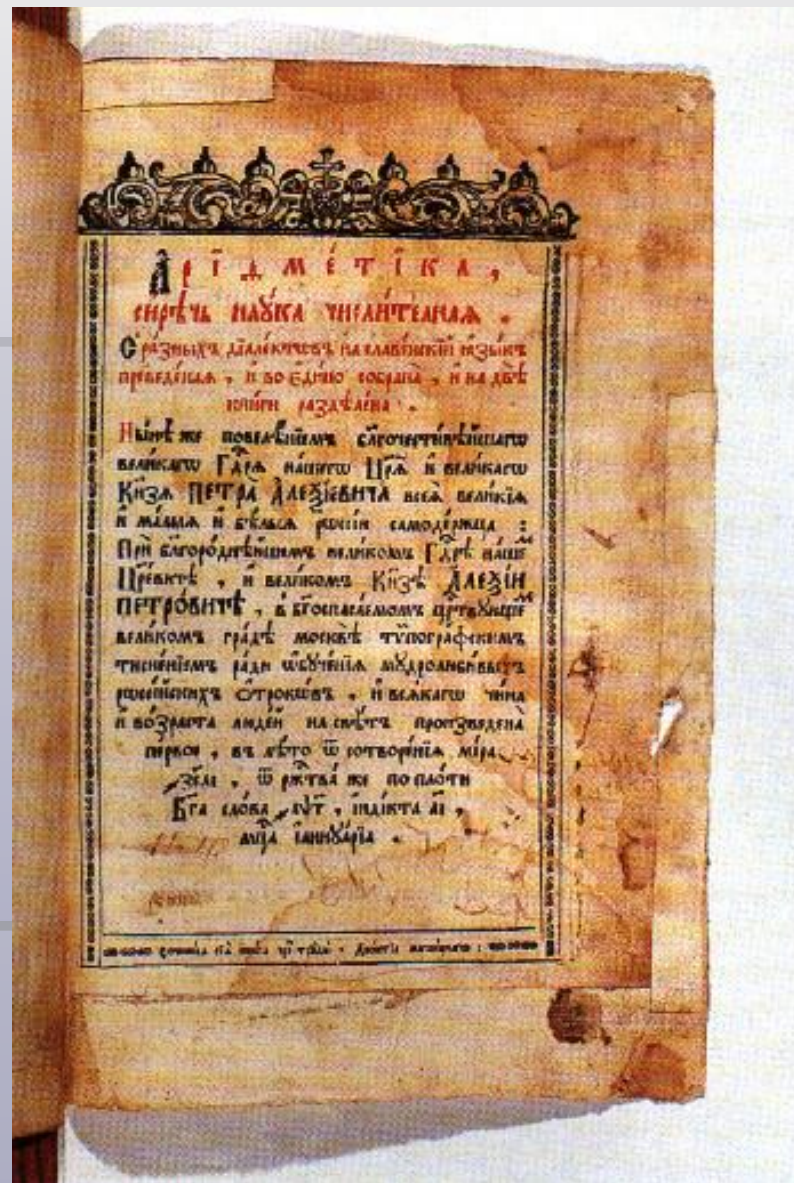 А҆рїѳме́тїка,
сирѣ́чь наꙋ́ка числи́телнаѧ.
С̾ ра́зныхъ дїале́ктѡвъ на славе́нскїй ѧ҆зы́къ
преведе́наѧ, и҆ во є҆ди́но собрана̀, и҆ на двѣ̀
кни̑ги раздѣле́на.
Нн҃ѣ же повелѣ́нїемъ бл҃гочести́вѣйшагѡ
вели́кагѡ Гдⷭ҇рѧ на́шегѡ Цр҃ѧ̀ и҆ вели́кагѡ
Кн҃зѧ ПЕТРА̀ А҆ЛЕѮі́ЕВИЧА всеѧ̀ вели́кїѧ
и҆ ма́лыѧ и҆ бѣ́лыѧ рѡссі́и самоде́ржца:
Прѝ бл҃горо́днѣйшемъ вели́комъ Гдⷭ҇рѣ на́шеⷨ
Цр҃е́вичѣ, и҆ вели́комъ Кн҃зѣ А҆ЛЕѮі́И
ПЕТРО́ВИЧѢ, в̾ бг҃оспаса́емомъ црⷭ҇твꙋ́ющеⷨ
вели́комъ гра́дѣ москвѣ̀ тѷпогра́фскимъ
тисне́нїемъ ра́ди ѡ҆бꙋче́нїѧ мꙋдролюби́выхъ
рѡссі́йскихъ ѻ҆́трокѡвъ, и҆ всѧ́кагѡ чи́на
и҆ во́зраста люде́й на свѣ́тъ произведена̀
пе́рвое, въ лѣ́то ѿ сотворе́нїѧ мі́ра
҂зсаі, ѿ ржⷭ҇тва́ же по пло́ти
Бг҃а сло́ва ҂аѱг, і҆ндї́кта аі,
мцⷭ҇а і҆аннꙋа́рїа.
сочини́сѧ сїѧ̀ кни́га чрез̾ трꙋды̀ Лео́нтїа магни́цкагѡ: